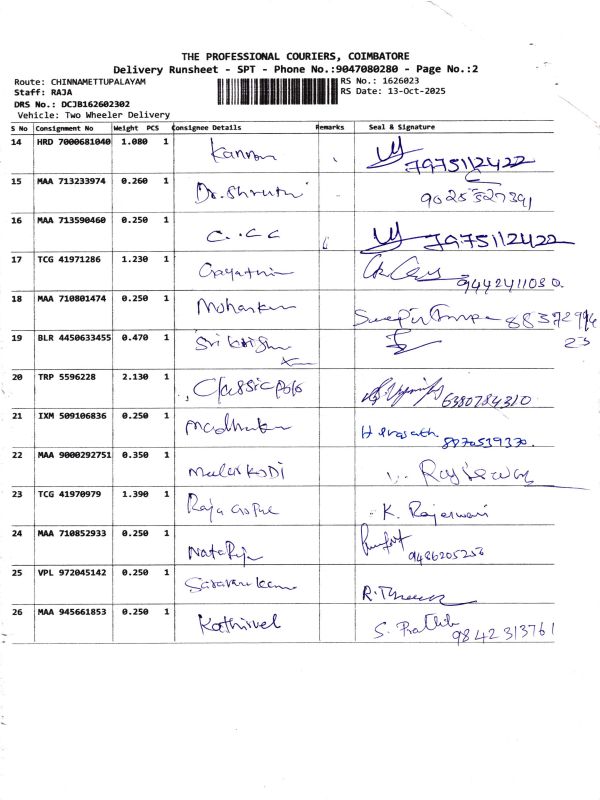 THE PROFESSIONAL COURIERS, COIMBATORE
Delivery Runsheet - SPT - Phone No.:9047080280 - Page No.:2
Route: CHINNAMETTUPALAYAM RS No.: 1626023
Staff: RAJA RS Date: 13-Oct-2025
DRS No.: DCJB162602302
Vehicle: Two Wheeler Delivery
S No Consignment No Weight PCS Consignee Details Remarks Seal & Signature
14 HRD 7000681040 1.080 1 Kannan 7975112422
15 MAA 713233974 0.260 1 Dr. Shruthi 9025527391
16 MAA 713590460 0.250 1 C.CC 7975112422
17 TCG 41971286 1.230 1 Gayathri 9442411030.
18 MAA 710801474 0.250 1
19 BLR 4450633455 0.470 1
20 TRP 5596228 2.130 1 Classic polo 6380784310
21 IXM 509106836 0.250 1 8870539330.
22 MAA 9000292751 0.350 1 MalarKODI
23 TCG 41970979 1.390 1 K. Rajeswari
24 MAA 710852933 0.250 1 9486205256
25 VPL 972045142 0.250 1
26 MAA 945661853 0.250 1 Kathirvel 9842313761